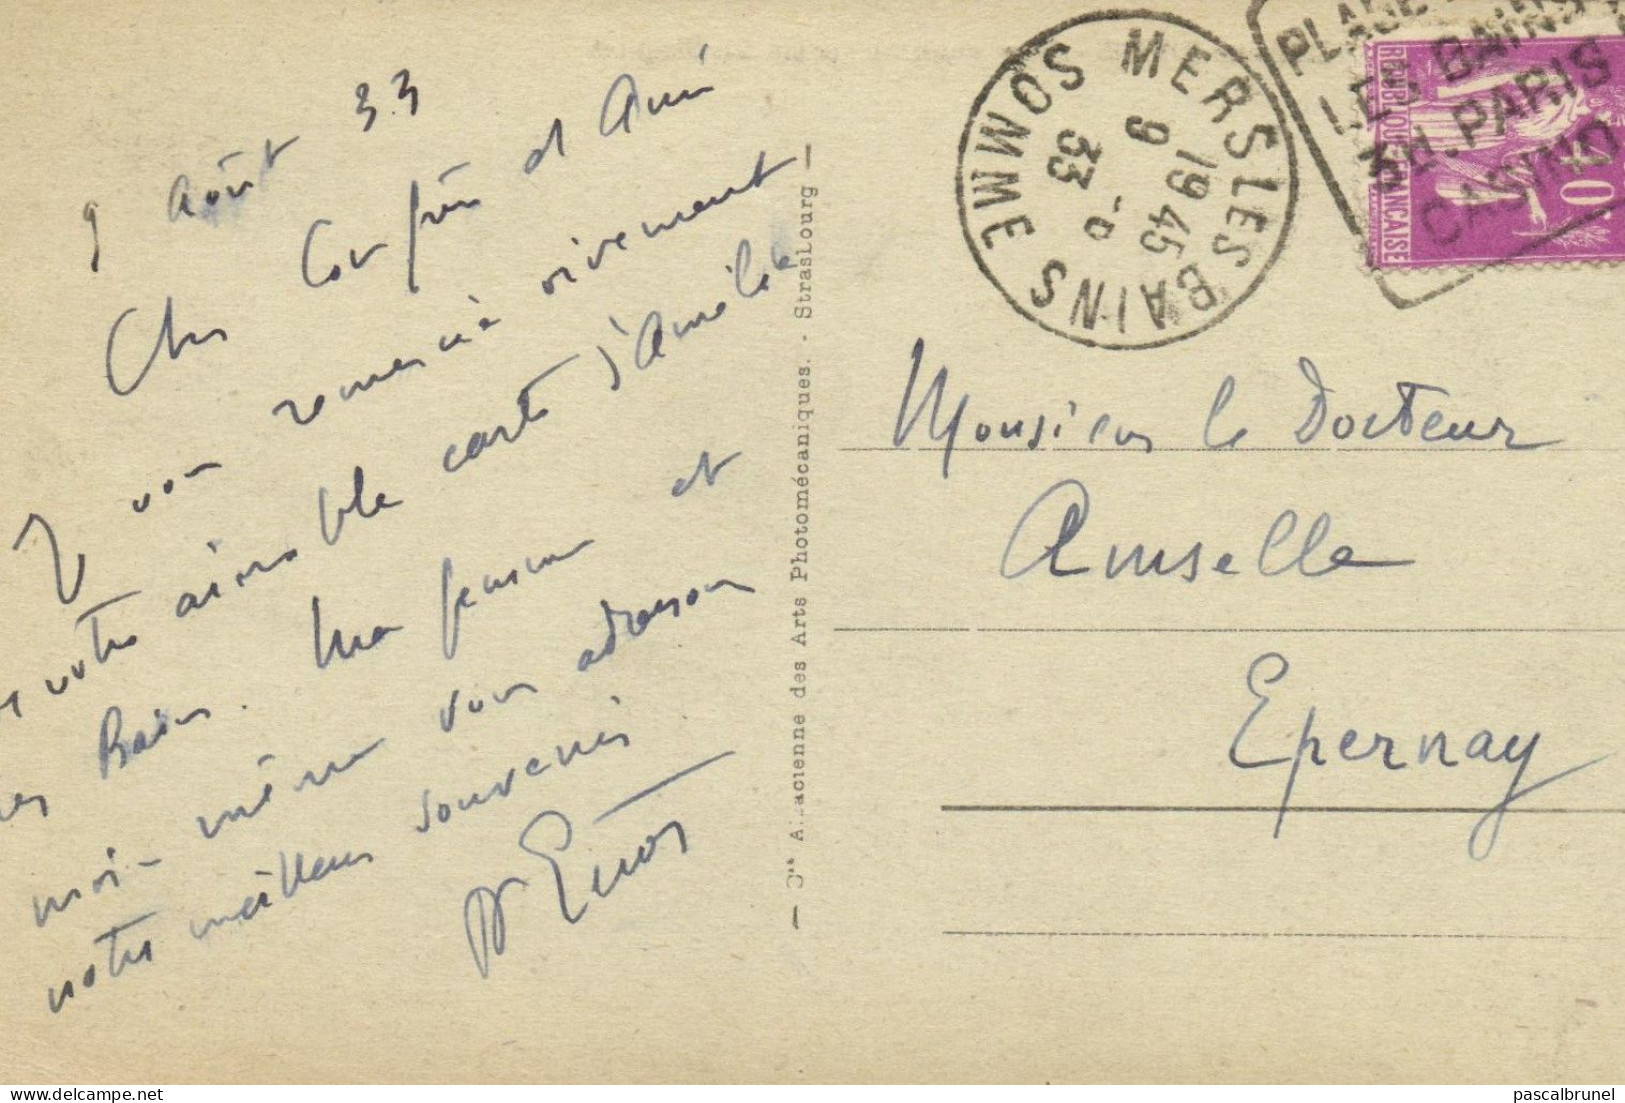 9 Août 33
Cher Confrère et Ami
Je vous remercie vivement
votre aimable carte d'Amélie
les Bains. Ma femme et
moi-même vous adressons
notre meilleur souvenir
Dr
— Cie Alsacienne des Arts Photomécaniques. - Strasbourg —
MERS LES BAINS SOMME
1945
9 -8
33
PLAGE
LES BAINS
PARIS
CASINO
REPUBLIQUE FRANÇAISE
40
Monsieur le Docteur
Amselle
Epernay
pascalbrunel
delcampe.net